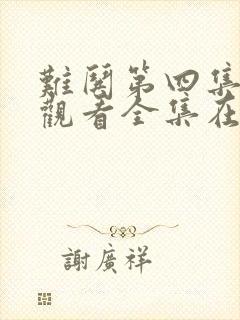 難閱第四集
觀看全集在
謝廣祥